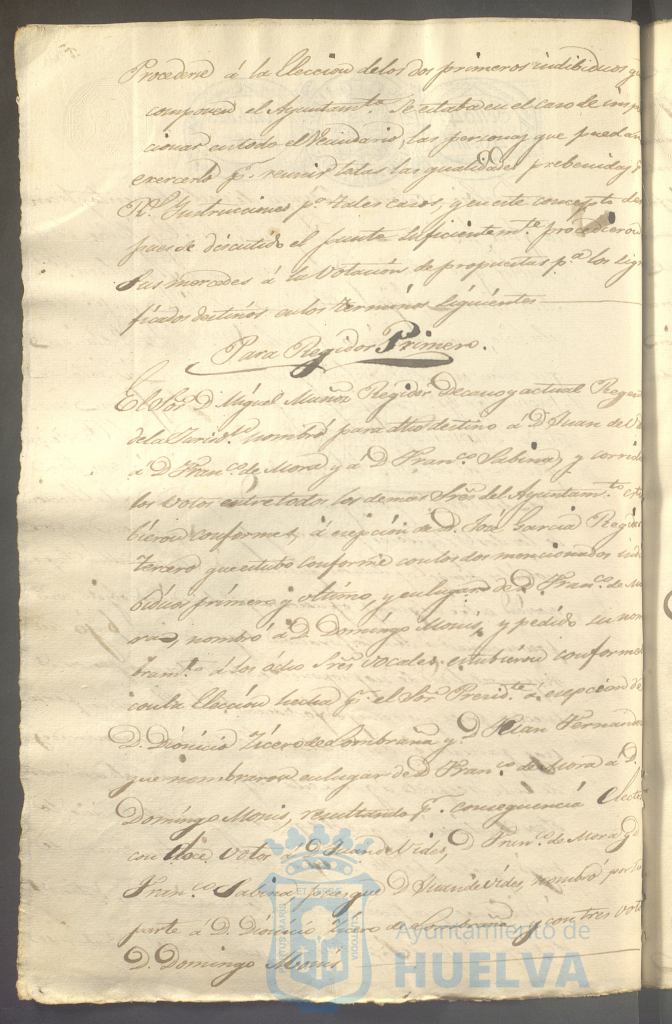 Procederse á la Eleccion delos dos primeros indibiduos q
componen el Ayuntam.to Se estaba en el caso de
cionar entodo el Vecindario, las personas que puedan
exercerlo p.r reunir todas las qualidades prebenidas
R.s Instrucciones p.a tales casos, y en este concepto des
pues de discutido el punto suficientem.te procedieron
Sus mercedes á la Votación de propuestas p.a los sig
ficados destinos enlos terminos siguientes
Para Regidor Primero.
El Sor. D. Miguel Muñoz Regidor Decano y actual Regen
dela Jurisd.n nombró para dho destino á D. Juan de Vi
á D. Fran.co de Mora y á D. Fran.co Sabina, y corrido
los votos entre todos los demas Sres del Ayuntam.to estu
bieron conformes, á ecepción de D. José García Regidor
Tercero que estubo conforme con los dos mencionados indi
biduos primero y ultimo, y en lugar de D. Fran.co de Mo
ra, nombró á D. Domingo Monis, y pedido su nom
bram.to á los ocho Sres Vocales, estubieron conformes
con la Elección hecha p.r el Sor. Presid.te á ecepcion de
D. Dionicio Ticero de Lombraña y D. Juan Fernandez
que nombraron en lugar de D. Fran.co de Mora á D.
Domingo Monis, resultando p.r consequencia Electos
con doce Votos D. Juan de Vides, D. Fran.co de Mora y D
Fran.co Sabina porque D. Juan de Vides, nombró por su
parte á D. Dionicio Ticero de Lombraña y con tres Voto
D. Domingo Monis
Ayuntamiento de
HUELVA